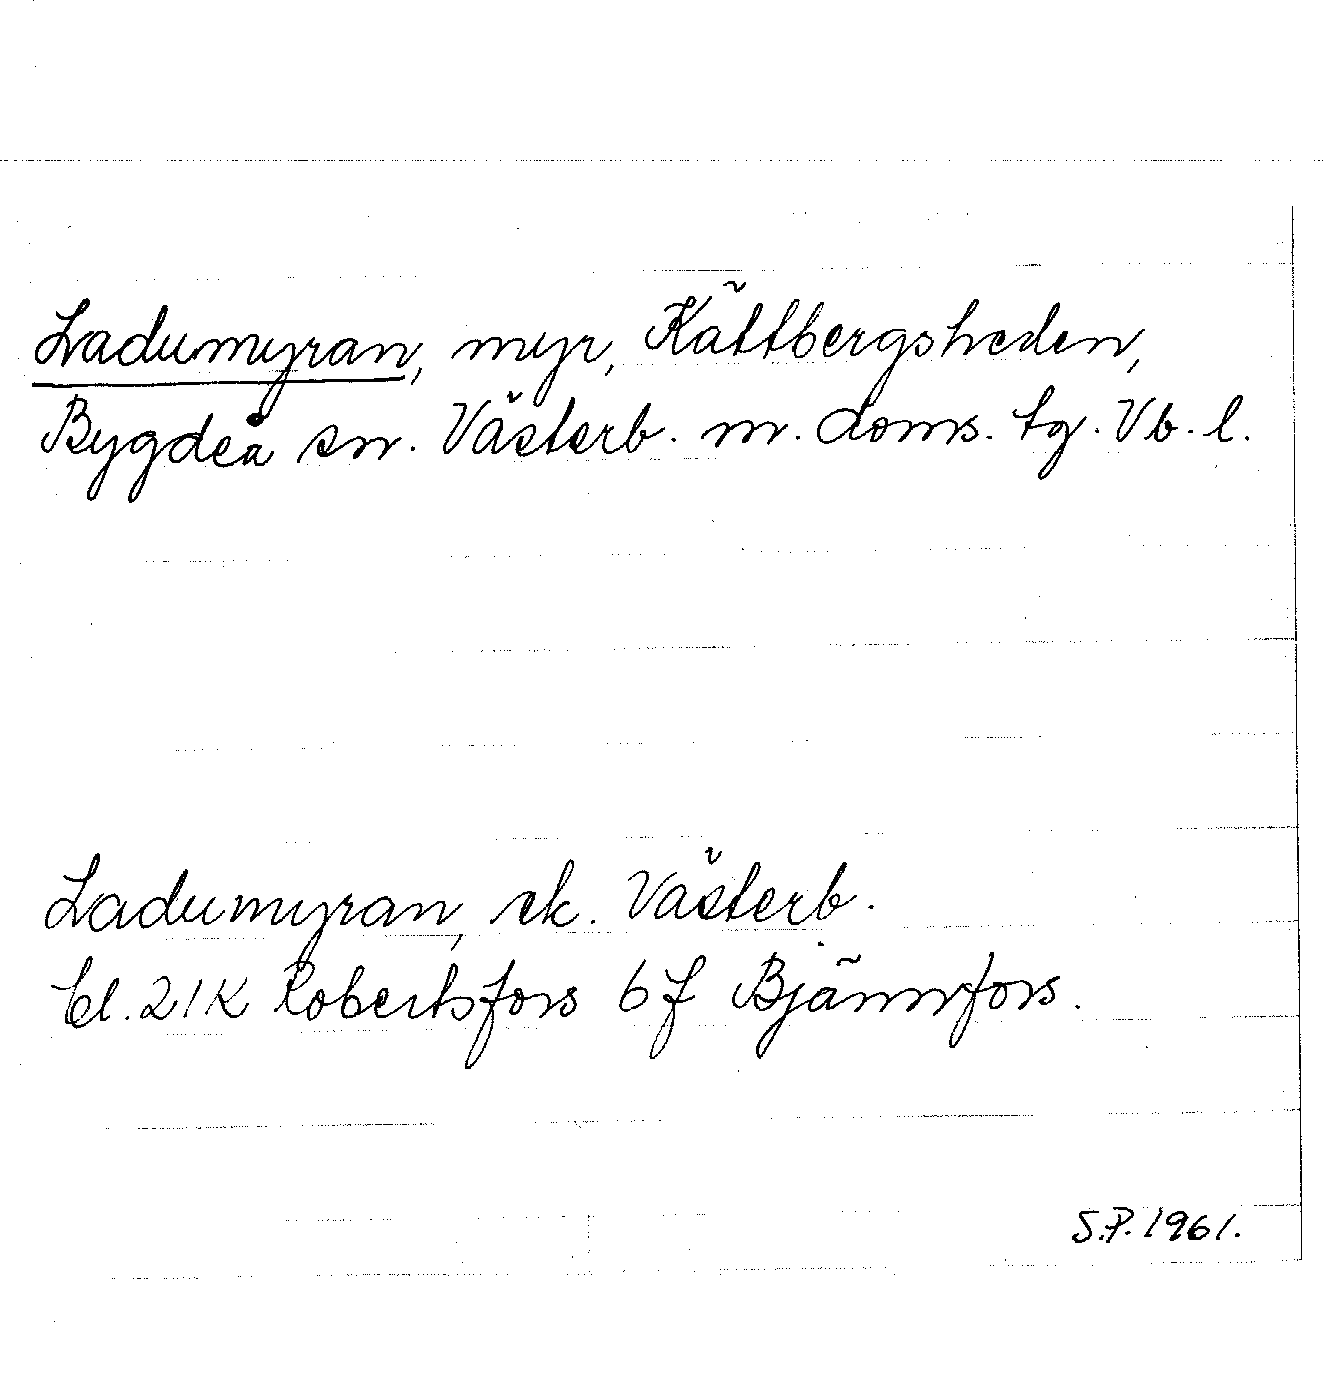 Ladumyran, myr, Kättbergsheden,
Bygdeå sn. Västerb. m. doms. tg. Vb. l.
Ladumyran, ek. Västerb.
bl. 21K Robertsfors 6f Bjännfors.
S.P. 1961.